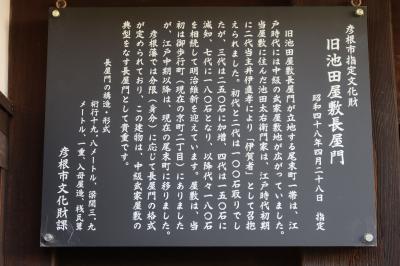 彦根市指定文化財
旧池田屋敷長屋門
昭和四十八年四月二十八日　指定
旧池田屋敷長屋門が立地する尾末町一帯は、江
戸時代には中級の武家屋敷地が広がっていました。
当屋敷に住んだ池田太右衛門家は、江戸時代初期
に二代当主井伊直孝により「伊賀者」として召抱
えられました。初代と二代は一〇〇石取りでし
たが、三代は二五〇石に加増、四代は一五〇石に
減知、七代に一八〇石となり、以降代々一八〇石
を相続して明治維新を迎えています。屋敷は、当
初は御歩行町(現在の京町二丁目)にありました
が、江戸中期以降は、現在の尾末町に移りました。
彦根藩では分限(身分)に応じて長屋門の格式
が定められており、この建物は、中級武家屋敷の
典型をなす長屋門として貴重です。
長屋門の構造・形式
桁行十九.八メートル、梁間三.九
メートル、一重、入母屋造、桟瓦葺
彦根市文化財課